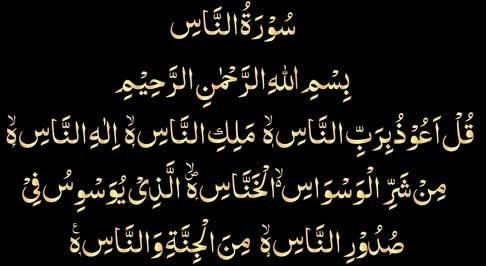 سُوْرَةُ النَّاسِ
بِسْمِ اللهِ الرَّحْمٰنِ الرَّحِيْمِ
قُلْ اَعُوْذُ بِرَبِّ النَّاسِۙ مَلِكِ النَّاسِۙ اِلٰهِ النَّاسِۙ
مِنْ شَرِّ الْوَسْوَاسِ ۙ الْخَنَّاسِۙ الَّذِىْ يُوَسْوِسُ فِىْ
صُدُوْرِ النَّاسِۙ مِنَ الْجِنَّةِ وَ النَّاسِ